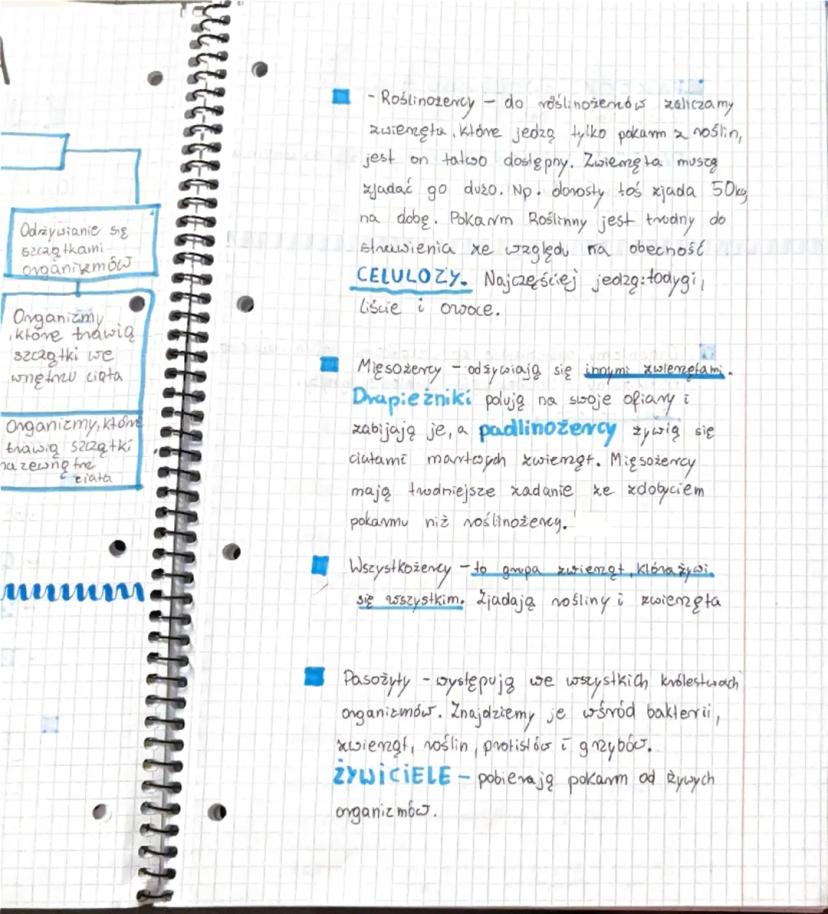 Odżywianie się
szczątkami
organizmów
Organizmy
, które trawią
szczątki we
wnętrzu ciała
Organizmy, które
trawią szczątki
na zewnątrz
ciała
- Roślinożercy – do roślinożerców zaliczamy
zwierzęta, które jedzą tylko pokarm z roślin,
jest on łatwo dostępny. Zwierzęta muszą
zjadać go dużo. Np. dorosły łoś zjada 50kg
na dobę. Pokarm Roślinny jest trudny do
strawienia ze względu na obecność
CELULOZY. Najczęściej jedzą: łodygi,
liście i owoce.
Mięsożercy – odżywiają się innymi zwierzętami.
Drapieżniki polują na swoje ofiary i
zabijają je, a padlinożercy żywią się
ciałami martwych zwierząt. Mięsożercy
mają trudniejsze zadanie ze zdobyciem
pokarmu niż roślinożercy.
Wszystkożercy – to grupa zwierząt, która żywi
się wszystkim. Zjadają rośliny i zwierzęta
Pasożyty – występują we wszystkich królestwach
organizmów. Znajdziemy je wśród bakterii,
zwierząt, roślin, protistów i grzybów.
ŻYWICIELE – pobierają pokarm od żywych
organizmów.